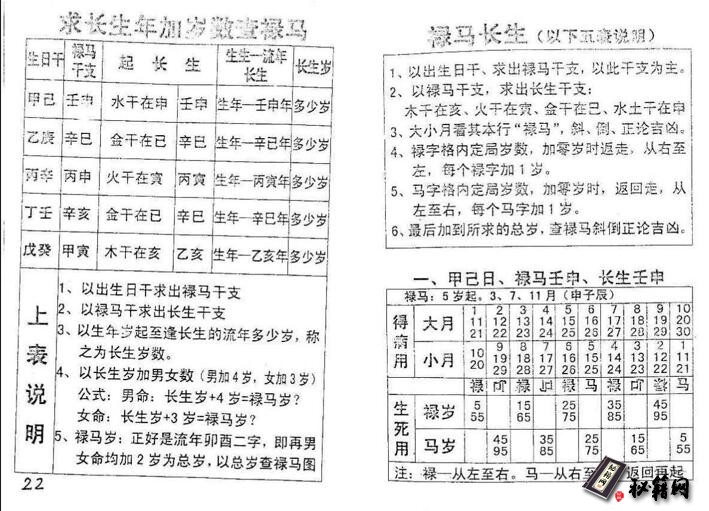 求长生年加岁数查禄马
生日干 禄马干支 起长生 生生一流年长生 长生岁
甲己 壬申 水干在申 壬申 生年一壬申年 多少岁
乙庚 辛巳 金干在已 辛巳 生年一辛巳年 多少岁
丙辛 丙申 火干在寅 丙寅 生年一丙寅年 多少岁
丁壬 辛亥 金干在已 辛巳 生年一辛巳年 多少岁
戊癸 甲寅 木干在亥 乙亥 生年一乙亥年 多少岁
上表说明
1、以出生日干求出禄马干支
2、以禄马干求出长生干支
3、以生年岁起至逢长生的流年多少岁，称
之为长生岁数。
4、以长生岁加男女数（男加4岁，女加3岁）
公式：男命：长生岁+4岁=禄马岁？
女命：长生岁+3岁=禄马岁？
5、禄马岁：正好是流年卯酉二字，即再男
女命均加2岁为总岁，以总岁查禄马图
22
禄马长生（以下五表说明）
1、以出生日干、求出禄马干支，以此干支为主。
2、以禄马干支，求出长生干支：
木干在亥、火干在寅、金干在巳、水土干在申
3、大小月看其本行“禄马”，斜、倒、正论吉凶。
4、禄字格内定局岁数，加零岁时返走，从右至
左，每个禄字加1岁。
5、马字格内定局岁数，加零岁时，返回走，从
左至右，每个马字加1岁。
6、最后加到所求的总岁，查禄马斜倒正论吉凶。
一、甲己日、禄马壬申、长生壬申
禄马：5岁起。3、7、11月（申子辰）
得病用
大月 1 2 3 4 5 6 7 8 9 10
11 12 13 14 15 16 17 18 19 20
21 22 23 24 25 26 27 28 29 30
小月 9 8 7 6 5 4 3 2 1
10 19 18 17 16 15 14 13 12 11
20 29 28 27 26 25 24 23 22 21
禄 禄 马 禄 禄 马
生死用
禄岁 5 15 25 35 45
55 65 75 85 95
马岁 45 35 25 15 5
95 85 75 65 55
注：禄一从左至右。马一从右至 返回再起
秘籍网